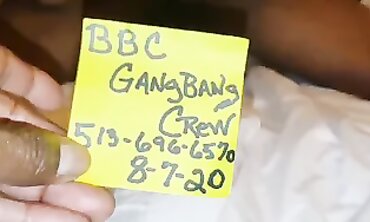 BBC
GangBang
Crew
513-696-6570
8-7-20